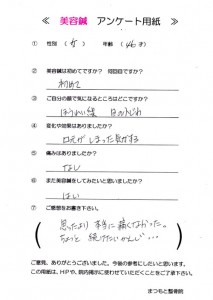 ≪ 美容鍼 アンケート用紙 ≫
① 性別 ( 女 ) 年齢 ( 46 才 )
② 美容鍼は初めてですか? 何回目ですか?
初めて
③ ご自分の顔で気になるところはどこですか?
ほうれい線 ほかんじわ
④ 変化や効果はありましたか?
口元が しまった気がする
⑤ 痛みはありましたか?
なし
⑥ また美容鍼をしてみたいと思いましたか?
はい
⑦ ご感想をお書き下さい。
思ったより 本当に 痛くなかった。
ちょっと 続けたいかんじ…
ご意見、ありがとうございました。今後の参考にしたいと思います。
この用紙は、HPや、院内掲示に使わせていただくことをご了承下さい。
まつもと整骨院